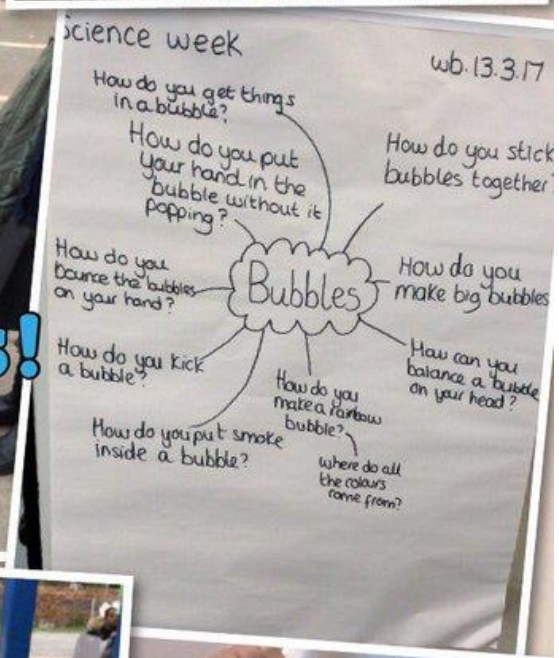 Science week
wb.13.3.17
How do you get things
in a bubble?
How do you put
your hand in the
bubble without it
popping?
How do you stick
bubbles together
How do you
bounce the bubbles
on your hand?
Bubbles
How do you
make big bubbles
How do you kick
a bubble?
How can you
balance a bubble
on your head?
How do you
make a rainbow
bubble?
where do all
the colours
come from?
How do you put smoke
inside a bubble?
!